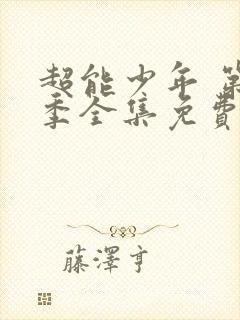 超能少年 第
季全集免費
藤澤亨